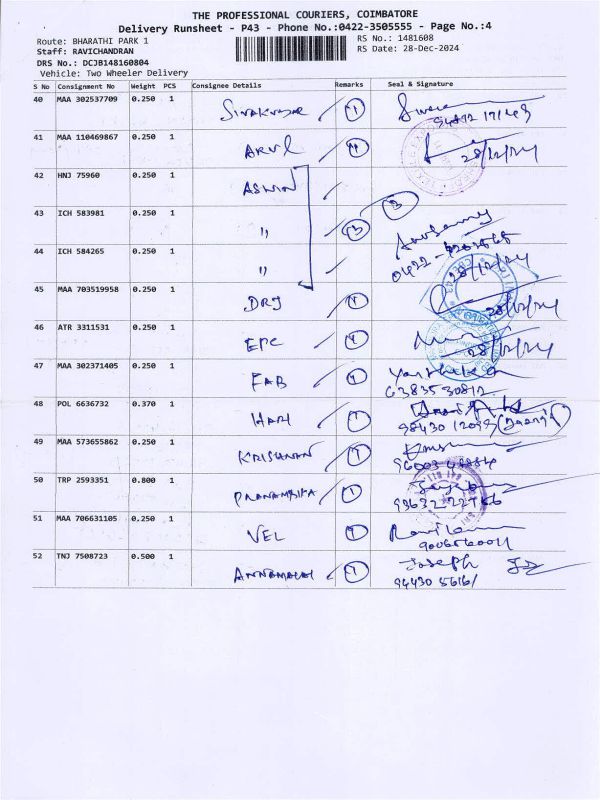 THE PROFESSIONAL COURIERS, COIMBATORE
Delivery Runsheet - P43 - Phone No.:0422-3505555 - Page No.:4
Route: BHARATHI PARK 1
RS No.: 1481608
Staff: RAVICHANDRAN
RS Date: 28-Dec-2024
DRS No.: DCJB148160804
Vehicle: Two Wheeler Delivery
S No Consignment No Weight PCS Consignee Details Remarks Seal & Signature
40 MAA 302537709 0.250 1 SIVAKUMAR 1
41 MAA 110469867 0.250 1 ARUL 1
28/12/24
42 HNJ 75960 0.250 1 ASWIN
3
43 ICH 583981 0.250 1 " 3
44 ICH 584265 0.250 1 "
28/12/24
45 MAA 703519958 0.250 1 DRJ 1
28/12/24
46 ATR 3311531 0.250 1 EPC 1
28/12/24
47 MAA 302371405 0.250 1 FAB 1
6383530812
48 POL 6636732 0.370 1 HARI 1
49 MAA 573655862 0.250 1 KRISHNAN 1
50 TRP 2593351 0.800 1 PRANAMBIKA 1
51 MAA 706631105 0.250 1 VEL 1
52 TNJ 7508723 0.500 1 ANNAMALAI 1
Joseph
94430 56161